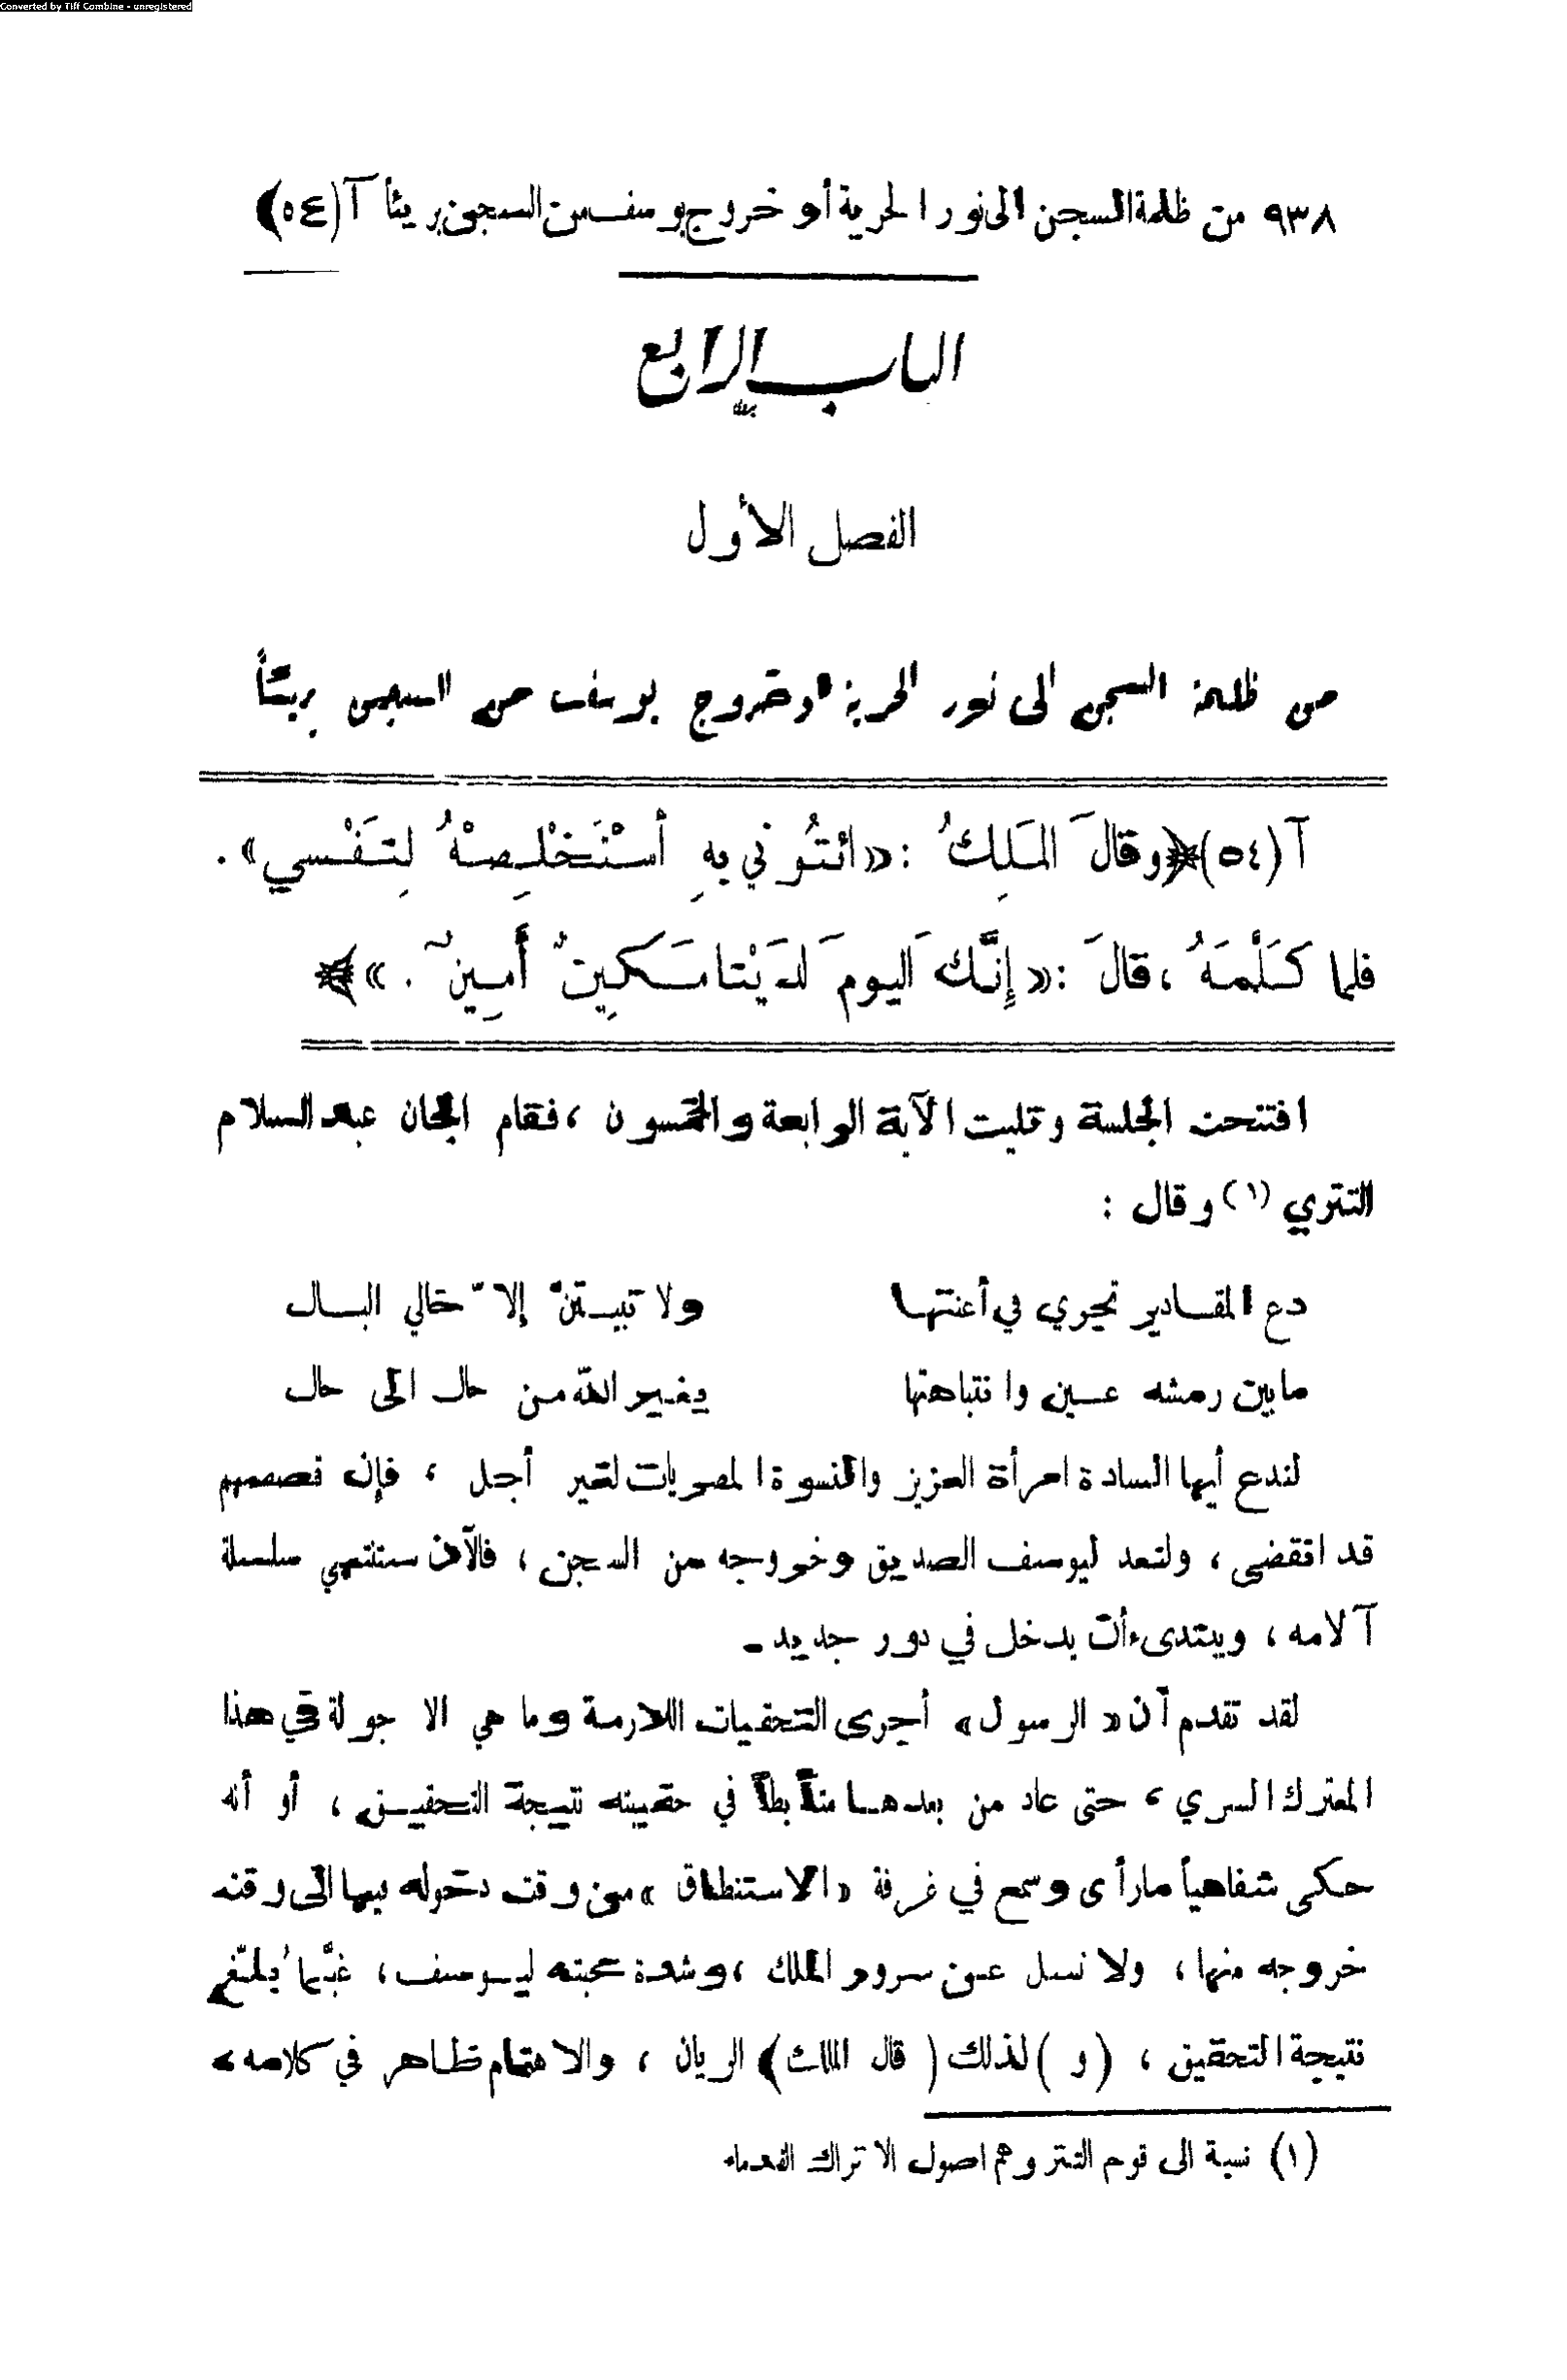 Converted by Tiff Combine - unregistered
٩٣٨ من ظلمة السجن الى نور الحرية أو خروج يوسف من السجن بريئاً آ (٥٤)
الباب الرابع
الفصل الأول
من ظلمة السجن الى نور الحرية أو خروج يوسف من السجن بريئاً
آ (٥٤) ﴿وقالَ المَلِكُ : «ائتُوني بِهِ أسْتَخْلِصْهُ لِنَفْسي» .
فلما كَلَّمَهُ ، قالَ : «إِنَّكَ اليومَ لدَيْنا مَكينٌ أَمِينٌ . »﴾
افتتحت الجلسة وتليت الآية الرابعة والخمسون ، فقام الخان عبد السلام
التتري (١) وقال :
دع المقادير تجري في أعنتها ولا تبيتنّ إلاّ خالي البال
ما بين رمشه عين وانتباهتها يغير الله من حال الى حال
لندع أيها السادة امرأة العزيز والنسوة المصريات لغير أجل ، فإن قصصهم
قد انقضى ، ولنعد ليوسف الصديق وخروجه من السجن ، فالآن ستنتهي سلسلة
آلامه ، ويبتدىء أن يدخل في دور جديد .
لقد تقدم أن «الرسول» أجرى التحقيات اللازمة وما هي الا جولة في هذا
المعترك السري ، حتى عاد من بعدها متأبطاً في حقيبته نتيجة التحقيق ، أو أنه
حكى شفاهياً ما رأى وسمع في غرفة «الاستنطاق» من وقت دخوله فيها الى وقت
خروجه منها ، ولا نسل عن سرور الملك ، وشدة محبته ليوسف ، غبَّما بلّغ
نتيجة التحقيق ، (و) لذلك (قال الملك) الريان ، والاهتمام ظاهر في كلامه ،
(١) نسبة الى قوم التتر وهم اصول الاتراك القدماء